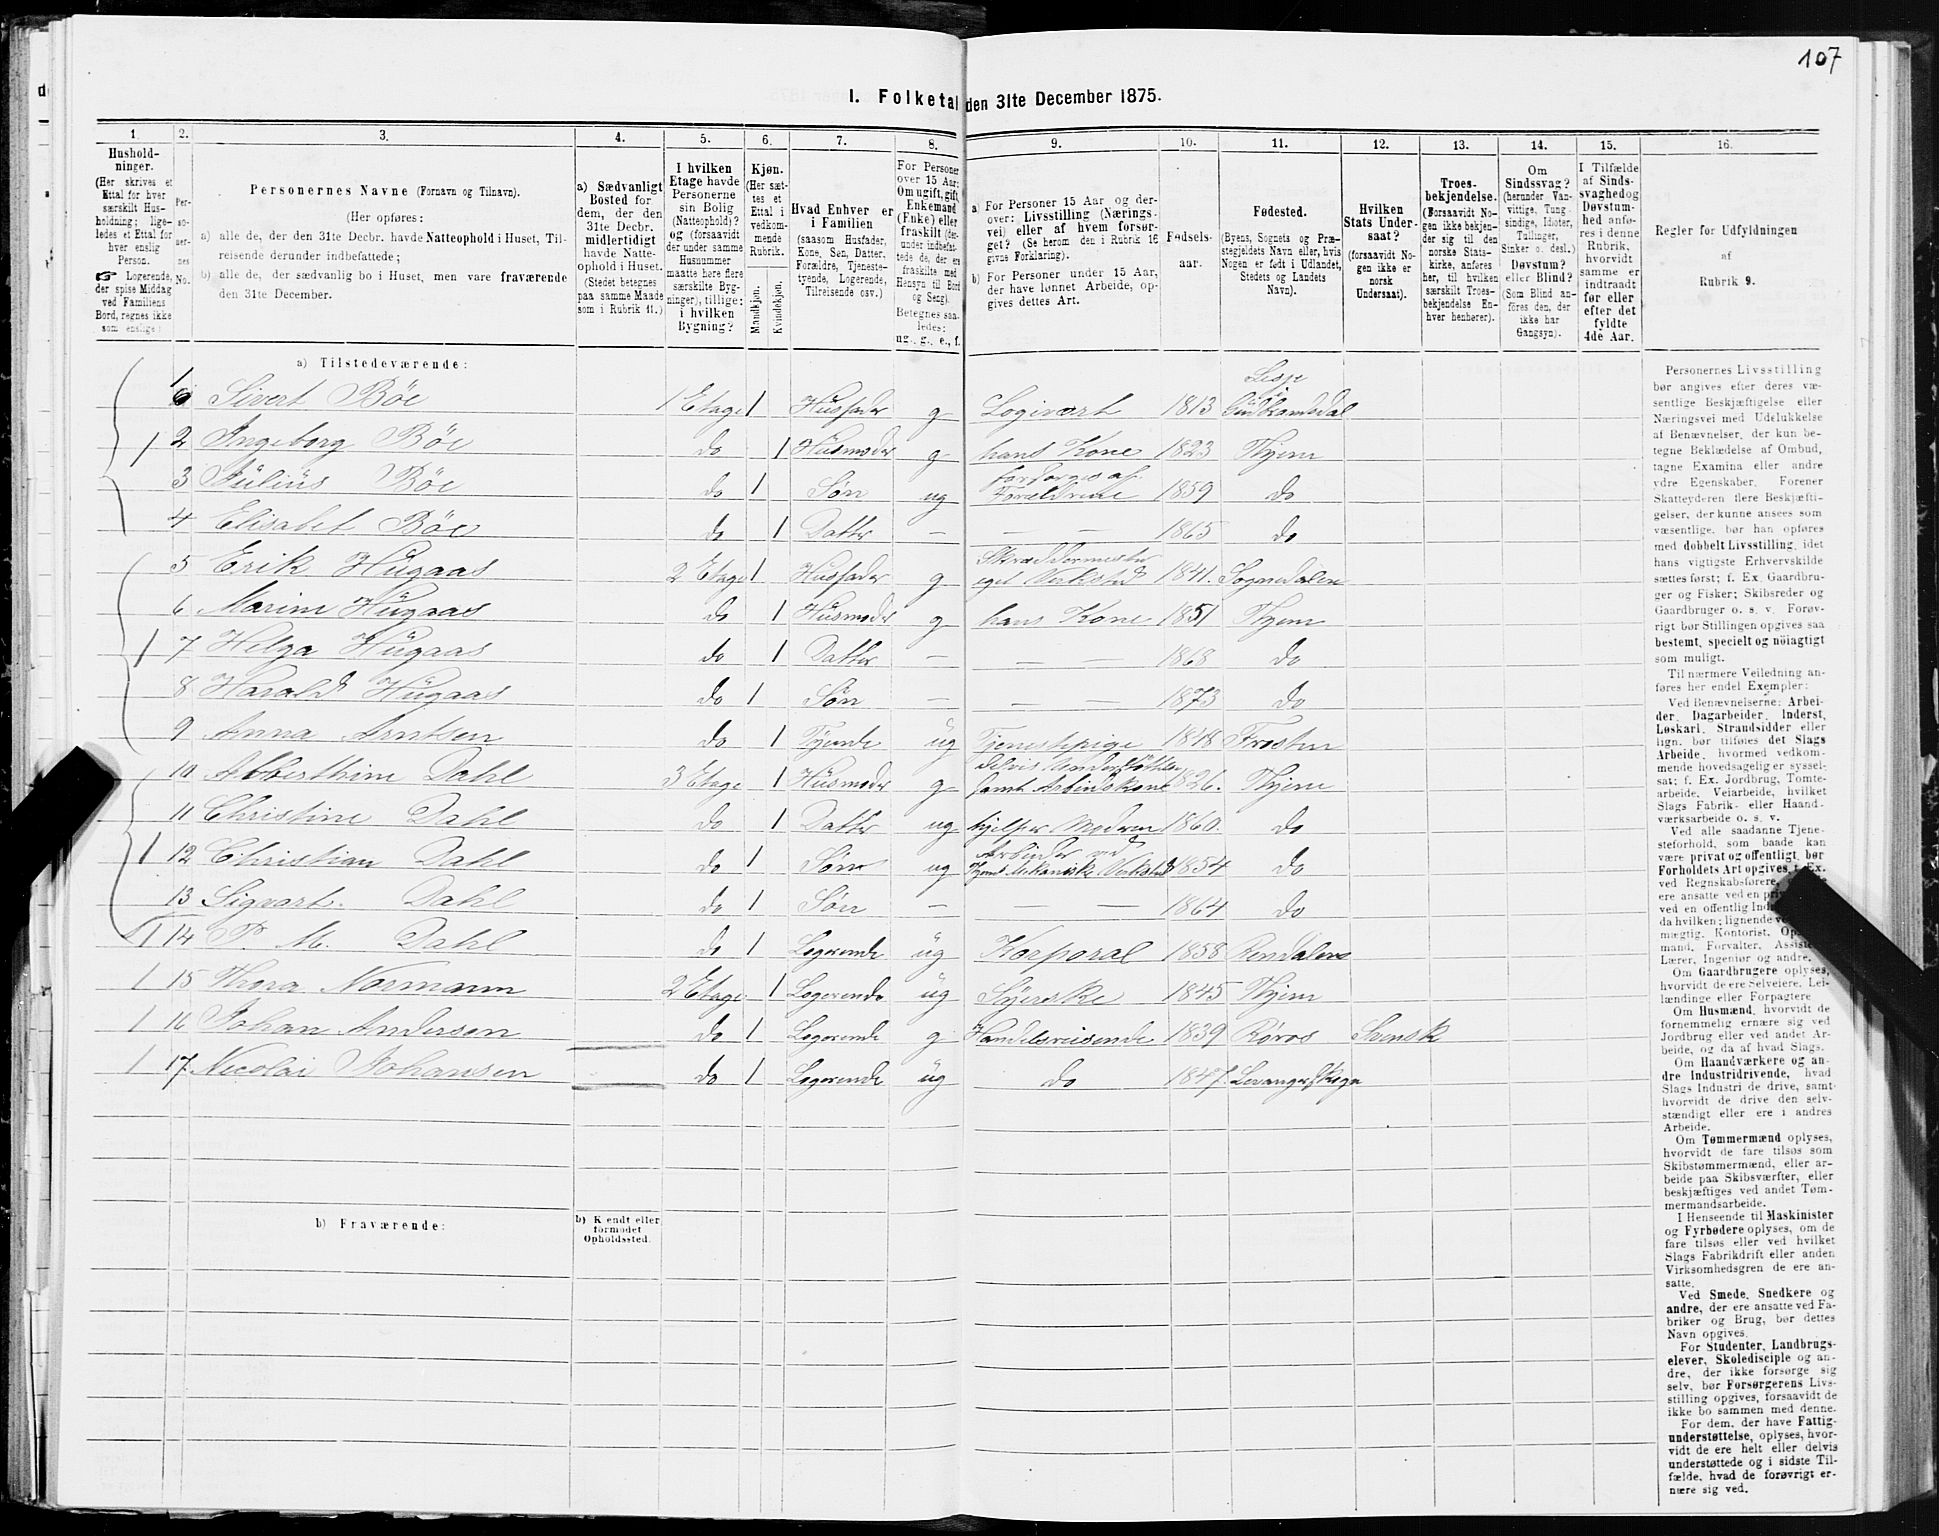 107
I. Folketal den 31te December 1875.
1. 2. 3. 4. 5. 6. 7. 8. 9. 10. 11. 12. 13. 14. 15. 16.
Hushold-
ninger.
(Her skrives et
Ettal for hver
særskilt Hus-
holdning; lige-
ledes et Ettal for
hver enslig
Person.
☞ Logerende,
der spise Middag
ved Familiens
Bord, regnes ikke
som enslige)
Per-
so-
ner-
nes
No.
Personernes Navne (Fornavn og Tilnavn).
(Her opføres:
a) alle de, der den 31te Decbr. havde Natteophold i Huset, Til-
reisende derunder indbefattede;
b) alle de, der sædvanlig bo i Huset, men vare fraværende
den 31te December.
a) Sædvanligt
Bosted for
dem, der den
31te Decbr.
midlertidigt
havde Natte-
ophold i Huset.
(Stedet betegnes
paa samme Maade
som i Rubrik 11.)
I hvilken
Etage havde
Personerne
sin Bolig
(Natteophold)?
og (forsaavidt
der under samme
Husnummer
maatte høre flere
særskilte Byg-
ninger), tillige:
i hvilken
Bygning?
Kjøn.
(Her sæt-
tes et
Ettal i
vedkom-
mende
Rubrik.
Mandkjøn.
Kvindekjøn.
Hvad Enhver er
i Familien
(saasom Husfader,
Kone, Søn, Datter,
Forældre, Tjeneste-
tyende, Logerende,
Tilreisende osv.)
For Personer
over 15 Aar:
Om ugift, gift,
Enkemand
(Enke) eller
fraskilt (der-
under indbefat-
tede de, der ere
fraskilte med
Hensyn til Bord
og Seng).
Betegnes saa-
ledes:
ug., g., e., f.
a) For Personer 15 Aar og der-
over: Livsstilling (Nærings-
vei) eller af hvem forsør-
get? (Se herom den i Rubrik 16
givne Forklaring).
b) For Personer under 15 Aar,
der have lønnet Arbeide, op-
gives dettes Art.
Fødsels-
aar.
Fødested.
(Byens, Sognets og Præ-
stegjeldets Navn eller, hvis
Nogen er født i Udlandet,
Stedets og Landets
Navn).
Hvilken
Stats Under-
saat?
(forsaavidt No-
gen ikke er
norsk
Undersaat).
Troes-
bekjendelse.
(Forsaavidt No-
gen ikke bekjen-
der sig til den
norske Stats-
kirke, anføres
her, til hvilken
særskilt Troes-
bekjendelse En-
hver henhører).
Om
Sindssvag?
(herunder Van-
vittige, Tung-
sindige, Idioter,
Tullinger,
Sinker o. desl.)
Døvstum?
eller Blind?
(Som Blind an-
føres den, der
ikke har
Gangsyn).
I Tilfælde
af Sinds-
svaghed og
Døvstum-
hed anfø-
res i denne
Rubrik,
hvorvidt
samme er
indtraadt
før eller
efter det
fyldte
4de Aar.
Regler for Udfyldningen
af
Rubrik 9.
a) Tilstedeværende:
1 Sivert Böe 1 Etage 1 Husfader g Logivært 1813 Lesje Gudbrandsdal
1 2 Ingeborg Böe do 1 Husmoder g hans Kone 1823 Thjem
3 Julius Böe do 1 Søn ug forsørges af Forældrene 1859 do
4 Elisabet Böe do 1 Datter — — — 1865 do
5 Erik Hugaas 2 Etage 1 Husfader g Skræddermester eget Verksted 1841. Sognedalen
6 Marine Hugaas do 1 Husmoder g hans Kone 1851 Thjem
1 7 Helga Hugaas do 1 Datter — — — 1868 do
8 Harald Hugaas do 1 Søn — — — 1873 do
9 Anna Arntsen do 1 Tyende ug Tjenestepige 1848 Frosten
10 Abberthine Dahl 3 Etage 1 Husmoder g delvis Understøttten samt Arbeidskone 1826. Thjem
11 Christine Dahl do 1 Datter ug hjelper Modren 1860. do
1 12 Christian Dahl do 1 Søn ug Arbeider ved Thjems Mekaniske Verksted 1854 do
13 Sigvart. Dahl do 1 Søn — — — 1864 do
1 14 P. M. Dahl do 1 Logerende ug Korporal 1858 Rendalen
1 15 Thora Normann 2 Etage. 1 Logerende ug Syerske 1845 Thjem
1 16 Johan Andersen do 1 Logerende g Handelsreisende 1839 Røros Svensk
1 17 Nicolai Johansen do 1 Logerende ug do 1847. Levanger Skogn
b) Fraværende:
b) Kjendt eller
formodet
Opholdssted.
Personernes Livsstilling
bør angives efter deres væ-
sentlige Beskjæftigelse eller
Næringsvei med Udelukkelse
af Benævnelser, der kun be-
tegne Beklædelse af Ombud,
tagne Examina eller andre
ydre Egenskaber. Forener
Skatteyderen flere Beskjæfti-
gelser, der kunne ansees som
væsentlige, bør han opføres
med dobbelt Livsstilling, idet
hans vigtigste Erhvervskilde
sættes først; f. Ex. Gaardbru-
ger og Fisker; Skibsreder og
Gaardbruger o. s. v. Forøv-
rigt bør Stillingen opgives saa
bestemt, specielt og nøiagtigt
som muligt.
Til nærmere Veiledning an-
føres her endel Exempler:
Ved Benævnelserne: Arbei-
der, Dagarbeider, Inderst,
Løskarl, Strandsidder eller
lign. bør tilføies det Slags
Arbeide, hvormed vedkom-
mende hovedsagelig er syssel-
sat; f. Ex. Jordbrug, Tomte-
arbeide, Veiarbeide, hvilket
Slags Fabrik- eller Haand-
værksarbeide o. s. v.
Ved alle saadanne Tjene-
steforhold, som baade kan
være privat og offentligt, bør
Forholdets Art opgives, t. Ex.
ved Regnskabsførere,
ere ansatte ved en
ved en offentlig
da hvilken; lignende
mægtig, Kontorist,
mand, Forvalter,
Lærer, Ingeniør og andre.
Om Gaardbrugere oplyses,
hvorvidt de ere Selveiere, Lei-
lændinge eller Forpagtere
Om Husmænd, hvorvidt de
fornemmelig ernære sig ved
Jordbrug eller ved andet Ar-
beide, og da af hvad Slags.
Om Haandværkere og an-
dre Industridrivende, hvad
Slags Industri de drive, samt
hvorvidt de drive den selv-
stændigt eller ere i andres
Arbeide.
Om Tømmermænd oplyses,
hvorvidt de fare tilsøs som
Skibstømmermænd, eller ar-
beide paa Skibsværfter, eller
beskjæftiges ved andet Tøm-
mermandsarbeide.
I Henseende til Maskinister
og Fyrbødere oplyses, om de
fare tilsøs eller ved hvilket
Slags Fabrikdrift eller anden
Virksomhedsgren de ere an-
satte.
Ved Smede, Snedkere og
andre, der ere ansatte ved Fa-
briker og Brug, bør dettes
Navn opgives.
For Studenter, Landbrugs-
elever, Skoledisciple og an-
dre, der ikke forsørge sig
selv, bør Forsørgerens Livs-
stilling opgives, forsaavidt de
ikke bo sammen med denne.
For dem, der have Fattig-
understøttelse, oplyses, hvor-
vidt de ere helt eller delvis
understøttede og i sidste Til-
fælde, hvad de forøvrigt er-
nære sig ved.